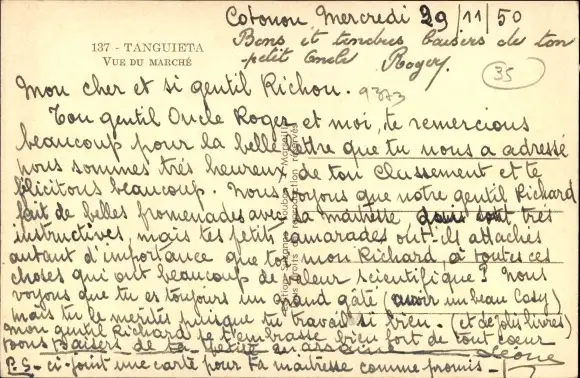 Cotonou Mercredi 29/11/50
Bons et tendres baisers de ton
petit Oncle Roger.
137 - TANGUIETA
VUE DU MARCHÉ
35
9373
Mon cher et si gentil Richou.
Ton gentil Oncle Roger et moi, te remercions
beaucoup pour la belle lettre que tu nous a adressé
nous sommes très heureux de ton classement et te
félicitons beaucoup. Nous voyons que notre gentil Richard
fait de belles promenades avec sa maîtresse dont très
instructives, mais tes petits camarades ont-ils attachés
autant d'importance que toi mon Richard, à toutes ces
choses qui ont beaucoup de valeur scientifique? Nous
voyons que tu es toujours un grand gâté (avoir un beau Cosy)
mais tu le mérites puisque tu travail si bien. (et de jolis livres)
mon gentil Richard je t'embrasse bien fort de tout cœur
bons baisers de ta petite marraine Léone
P.S- ci-joint une carte pour ta maîtresse comme promis -